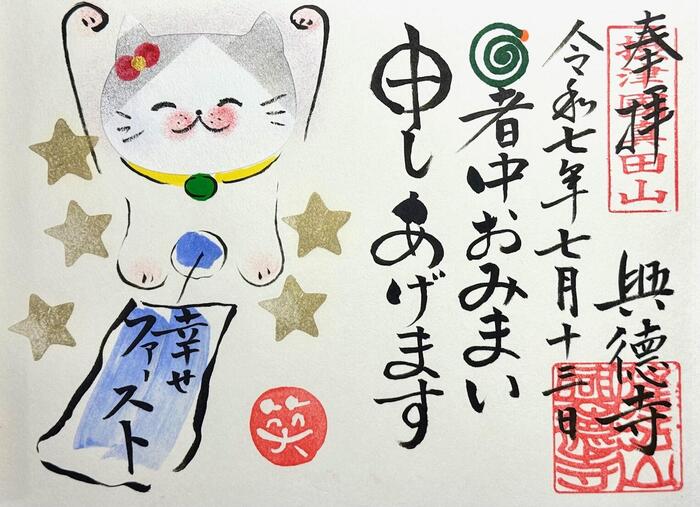 奉拝
摂津國真田山
興徳寺
令和七年七月十三日
暑中おみまい
申しあげます
幸せ
ファースト
笑